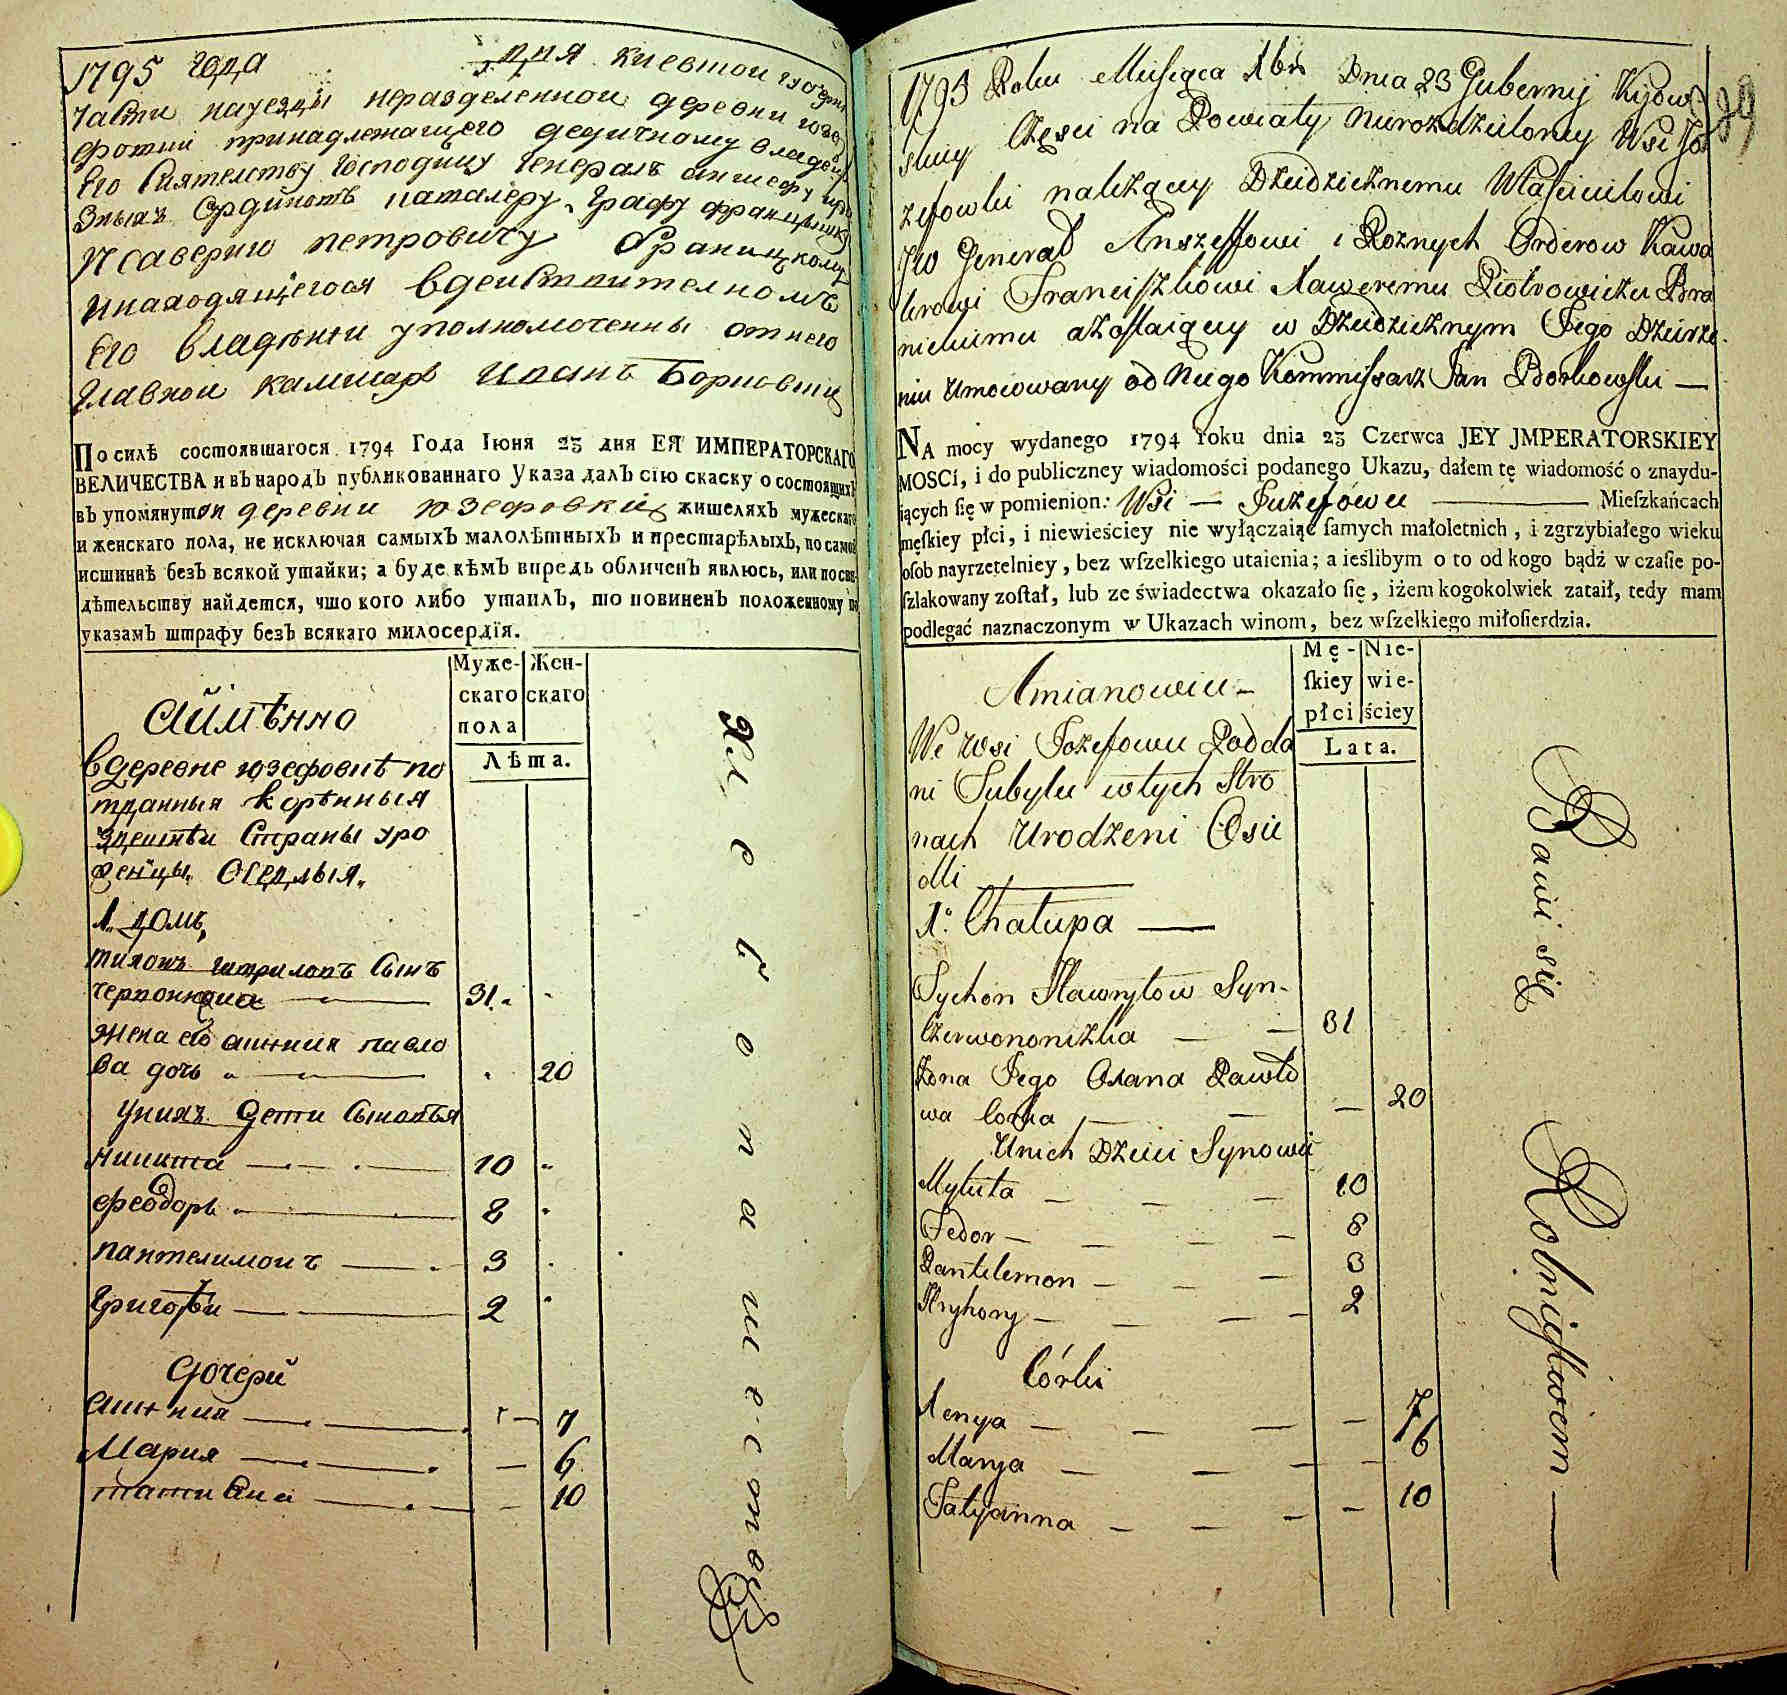 1795 года дня Киевской
части науезды неразделенной деревни юзе
фовки принадлежащего дедичному владе
Его Сиятелству Господину Генералъ аншефу и
зныхъ Ординовъ кавалеру Графу францишку
Ксаверию петровичу Браницкому
инаходящегося вдействителномъ
Его владении уполномоченны отнего
Главной камисаръ Иванъ Борковски
По силѣ состоявшагося 1794 Года Іюня 23 дня ЕЯ ИМПЕРАТОРСКАГО
ВЕЛИЧЕСТВА и въ народъ публикованнаго Указа далъ сію скаску о состоящихъ
въ упомянутой деревни юзефовки жителяхъ мужескаго
и женскаго пола, не исключая самыхъ малолѣтныхъ и престарѣлыхъ, по самой
истиннѣ безъ всякой утайки; а буде кѣмъ впредь обличенъ явлюсь, или по сви-
дѣтельству найдется, что кого либо утаилъ, то повиненъ положенному по
указамъ штрафу безъ всякаго милосердія.
Муже-скаго пола
Жен-скаго
Лѣта.
Аймѣнно
вдеревне юзефовкѣ по
тданныя корѣнныя
здешнѣи Страны уро
женцы Оседлыя
1. домъ
тихонъ гаврыловъ Сынъ
червоножка 31
жена его аксиния павло
ва дочъ 20
Уних дети Сыновья
Никита 10
Феодоръ 8
пантелимонъ 3
Григорѣи 2
дочери
аксиния 7
Мария 6
татиана 10
Хлебопашествомъ
1795 Roku Miesiąca Xbra Dnia 23 Gubernij Kijow
skiey Częsci na Powiaty Nierozdzieloney Wsi Jo
zefowki należącey Dziedzicznemu Własicielowi
JW Generał Anszeffowi i Rożnych Orderow Kawa
lerowi Franciszkowi Xaweremu Piotrowiczu Bra
nickiemu a zostaiącey w Dziedzicznym Jego Dzierże
niu Umocowany od Niego Kommissarz Jan Borkowski —
NA mocy wydanego 1794 roku dnia 23 Czerwca JEY JMPERATORSKIEY
MOSCi, i do publiczney wiadomości podanego Ukazu, dałem tę wiadomość o znaydu-
iących się w pomienion: Wsi — Juzefówce — Mieſzkańcach
męſkiey płci, i niewieściey nie wyłączaiąc ſamych małoletnich, i zgrzybiałego wieku
oſob nayrzetelniey, bez wſzelkiego utaienia; a ieślibym o to od kogo bądź w czaſie po-
ſzlakowany zoſtał, lub ze świadectwa okazało się, iżem kogokolwiek zataił, tedy mam
podlegać naznaczonym w Ukazach winom, bez wſzelkiego miłoſierdzia.
Mę-ſkiey płci
Nie-wie-ściey
Lata.
Amianowicie
We Wsi Jozefowce Podda
ni Tubylce w tych Stro
nach Urodzeni Osie
dli
1o: Chałupa —
Tychon Hawryłow Syn
Czerwononiżka 31
Żona Jego Oxana Pawło
wa Corka — 20
U nich Dzieci Synowie
Mykita 10
Fedor 8
Pantelemon 3
Hryhory 2
Córki
Xenya 7
Marya 6
Tatyanna 10
Bawi się Rolnictwem —
39